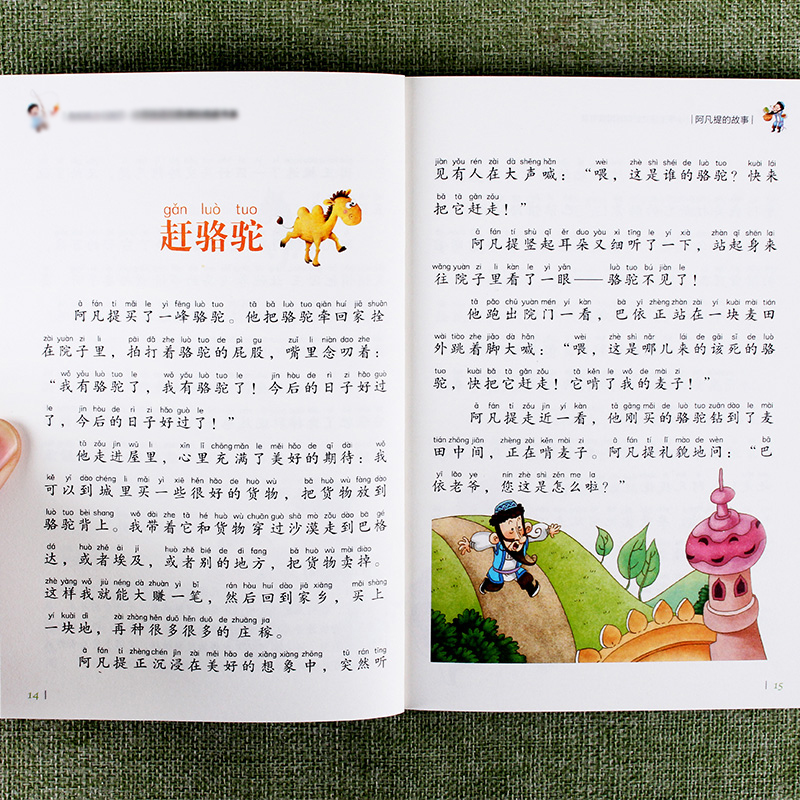 gǎn luò tuo
赶骆驼
ā fán tí mǎi le yì fēng luò tuo tā bǎ luò tuo qiān huí jiā shuān
阿凡提买了一峰骆驼。他把骆驼牵回家拴
zài yuàn zi li pāi dǎ zhe luò tuo de pì gu zuǐ li niàn dao zhe
在院子里，拍打着骆驼的屁股，嘴里念叨着：
wǒ yǒu luò tuo le wǒ yǒu luò tuo le jīn hòu de rì zi hǎo guò
“我有骆驼了，我有骆驼了！今后的日子好过
le jīn hòu de rì zi hǎo guò le
了，今后的日子好过了！”
tā zǒu jìn wū li xīn lǐ chōng mǎn le měi hǎo de qī dài wǒ
他走进屋里，心里充满了美好的期待：我
kě yǐ dào chéng li mǎi yì xiē hěn hǎo de huò wù bǎ huò wù fàng dào
可以到城里买一些很好的货物，把货物放到
luò tuo bèi shang wǒ dài zhe tā hé huò wù chuān guò shā mò zǒu dào bā gé
骆驼背上。我带着它和货物穿过沙漠走到巴格
dá huò zhě āi jí huò zhě bié de dì fang bǎ huò wù mài diào
达，或者埃及，或者别的地方，把货物卖掉。
zhè yàng wǒ jiù néng dà zhuàn yì bǐ rán hòu huí dào jiā xiāng mǎi shàng
这样我就能大赚一笔，然后回到家乡，买上
yí kuài dì zài zhòng hěn duō hěn duō de zhuāng jia
一块地，再种很多很多的庄稼。
ā fán tí zhèng chén jìn zài měi hǎo de xiǎng xiàng zhōng tū rán tīng
阿凡提正沉浸在美好的想象中，突然听
14
阿凡提的故事
jiàn yǒu rén zài dà shēng hǎn wèi zhè shì shéi de luò tuo kuài lái
见有人在大声喊：“喂，这是谁的骆驼？快来
bǎ tā gǎn zǒu
把它赶走！”
ā fán tí shù qǐ ěr duo yòu xì tīng le yí xià zhàn qǐ shēn lai
阿凡提竖起耳朵又细听了一下，站起身来
wǎng yuàn zi li kàn le yì yǎn luò tuo bú jiàn le
往院子里看了一眼——骆驼不见了！
tā pǎo chū yuàn mén yí kàn bā yī zhèng zhàn zài yí kuài mài tián
他跑出院门一看，巴依正站在一块麦田
wài tiào zhe jiǎo dà hǎn wèi zhè shì nǎr lái de gāi sǐ de luò
外跳着脚大喊：“喂，这是哪儿来的该死的骆
tuo kuài bǎ tā gǎn zǒu tā kěn le wǒ de mài zi
驼，快把它赶走！它啃了我的麦子！”
ā fán tí zǒu jìn yí kàn tā gāng mǎi de luò tuo zuān dào le mài
阿凡提走近一看，他刚买的骆驼钻到了麦
tián zhōng jiān zhèng zài kěn mài zi ā fán tí lǐ mào de wèn bā
田中间，正在啃麦子。阿凡提礼貌地问：“巴
yī lǎo ye nín zhè shì zěn me la
依老爷，您这是怎么啦？”
15